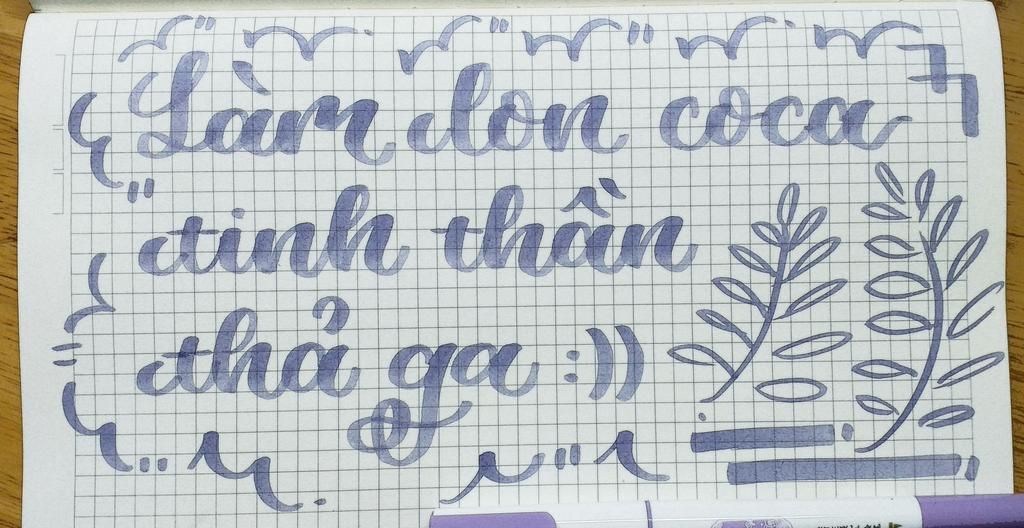 Làm lon coca
tinh thần
thả ga :))